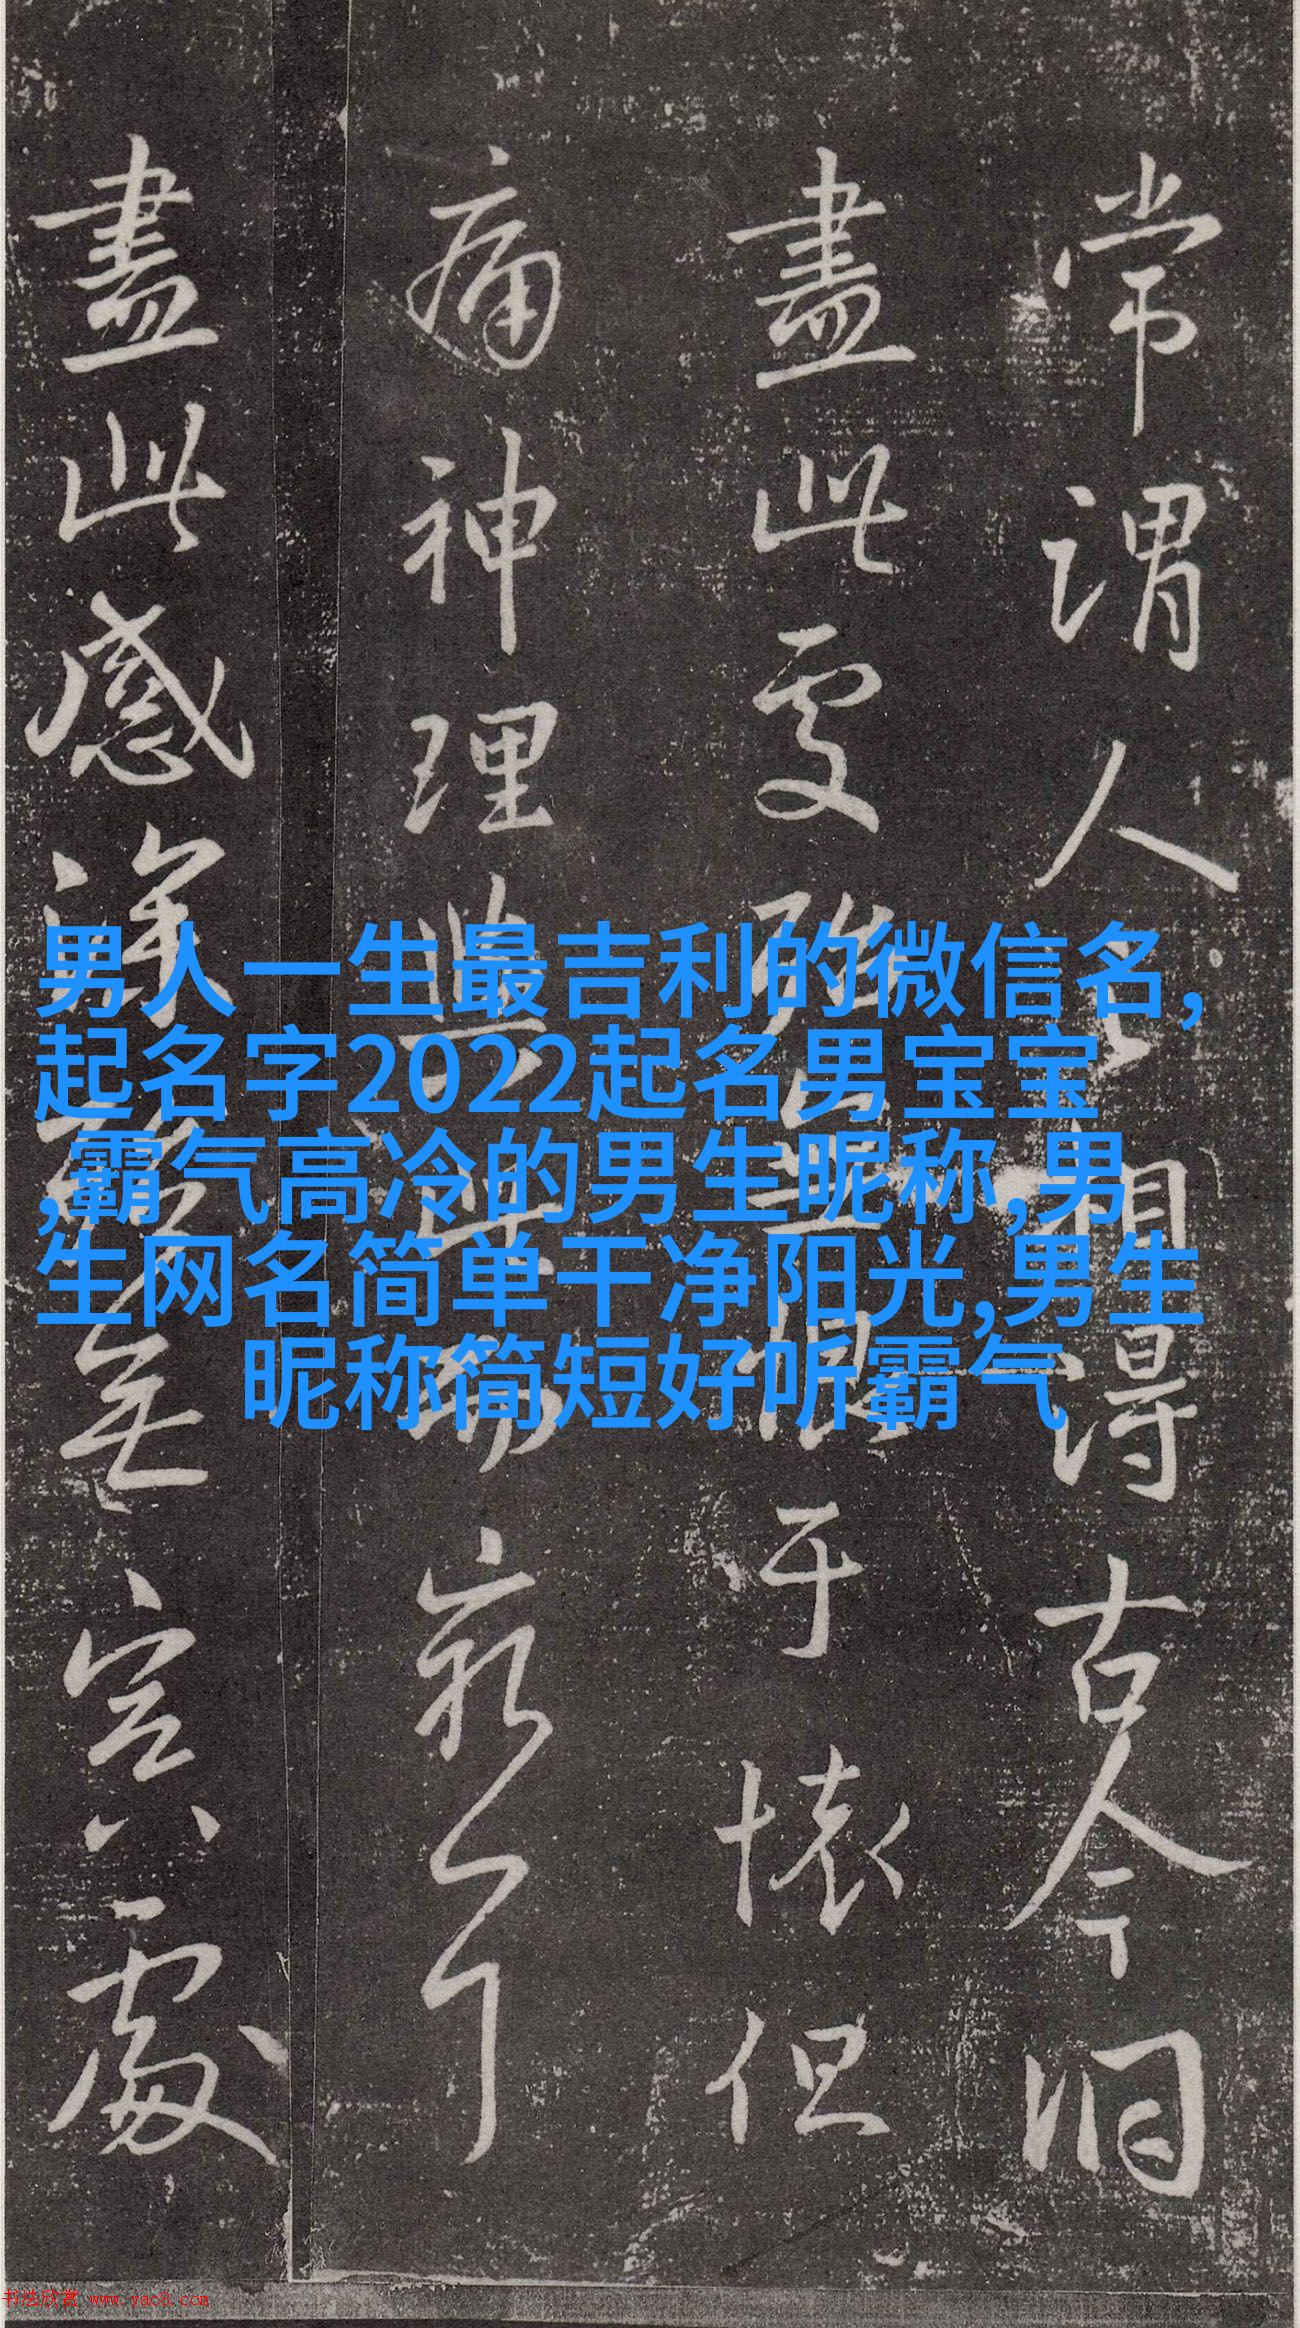 常謂人之相得古今洞
盡此處殆無恨于懷但
痛神理與此
盡此感深
處
男人一生最吉利的微信名,
起名字2022起名男宝宝
,霸气高冷的男生昵称,男
生网名简单干净阳光,男生
昵称简短好听霸气
书法欣赏 www.yac8.com